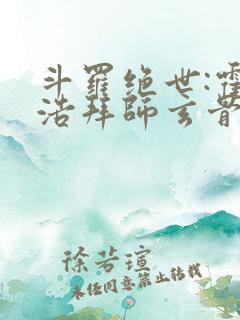 斗罗绝世:霍
浩拜师玄骨
徐若瑄
未经同意禁止转载